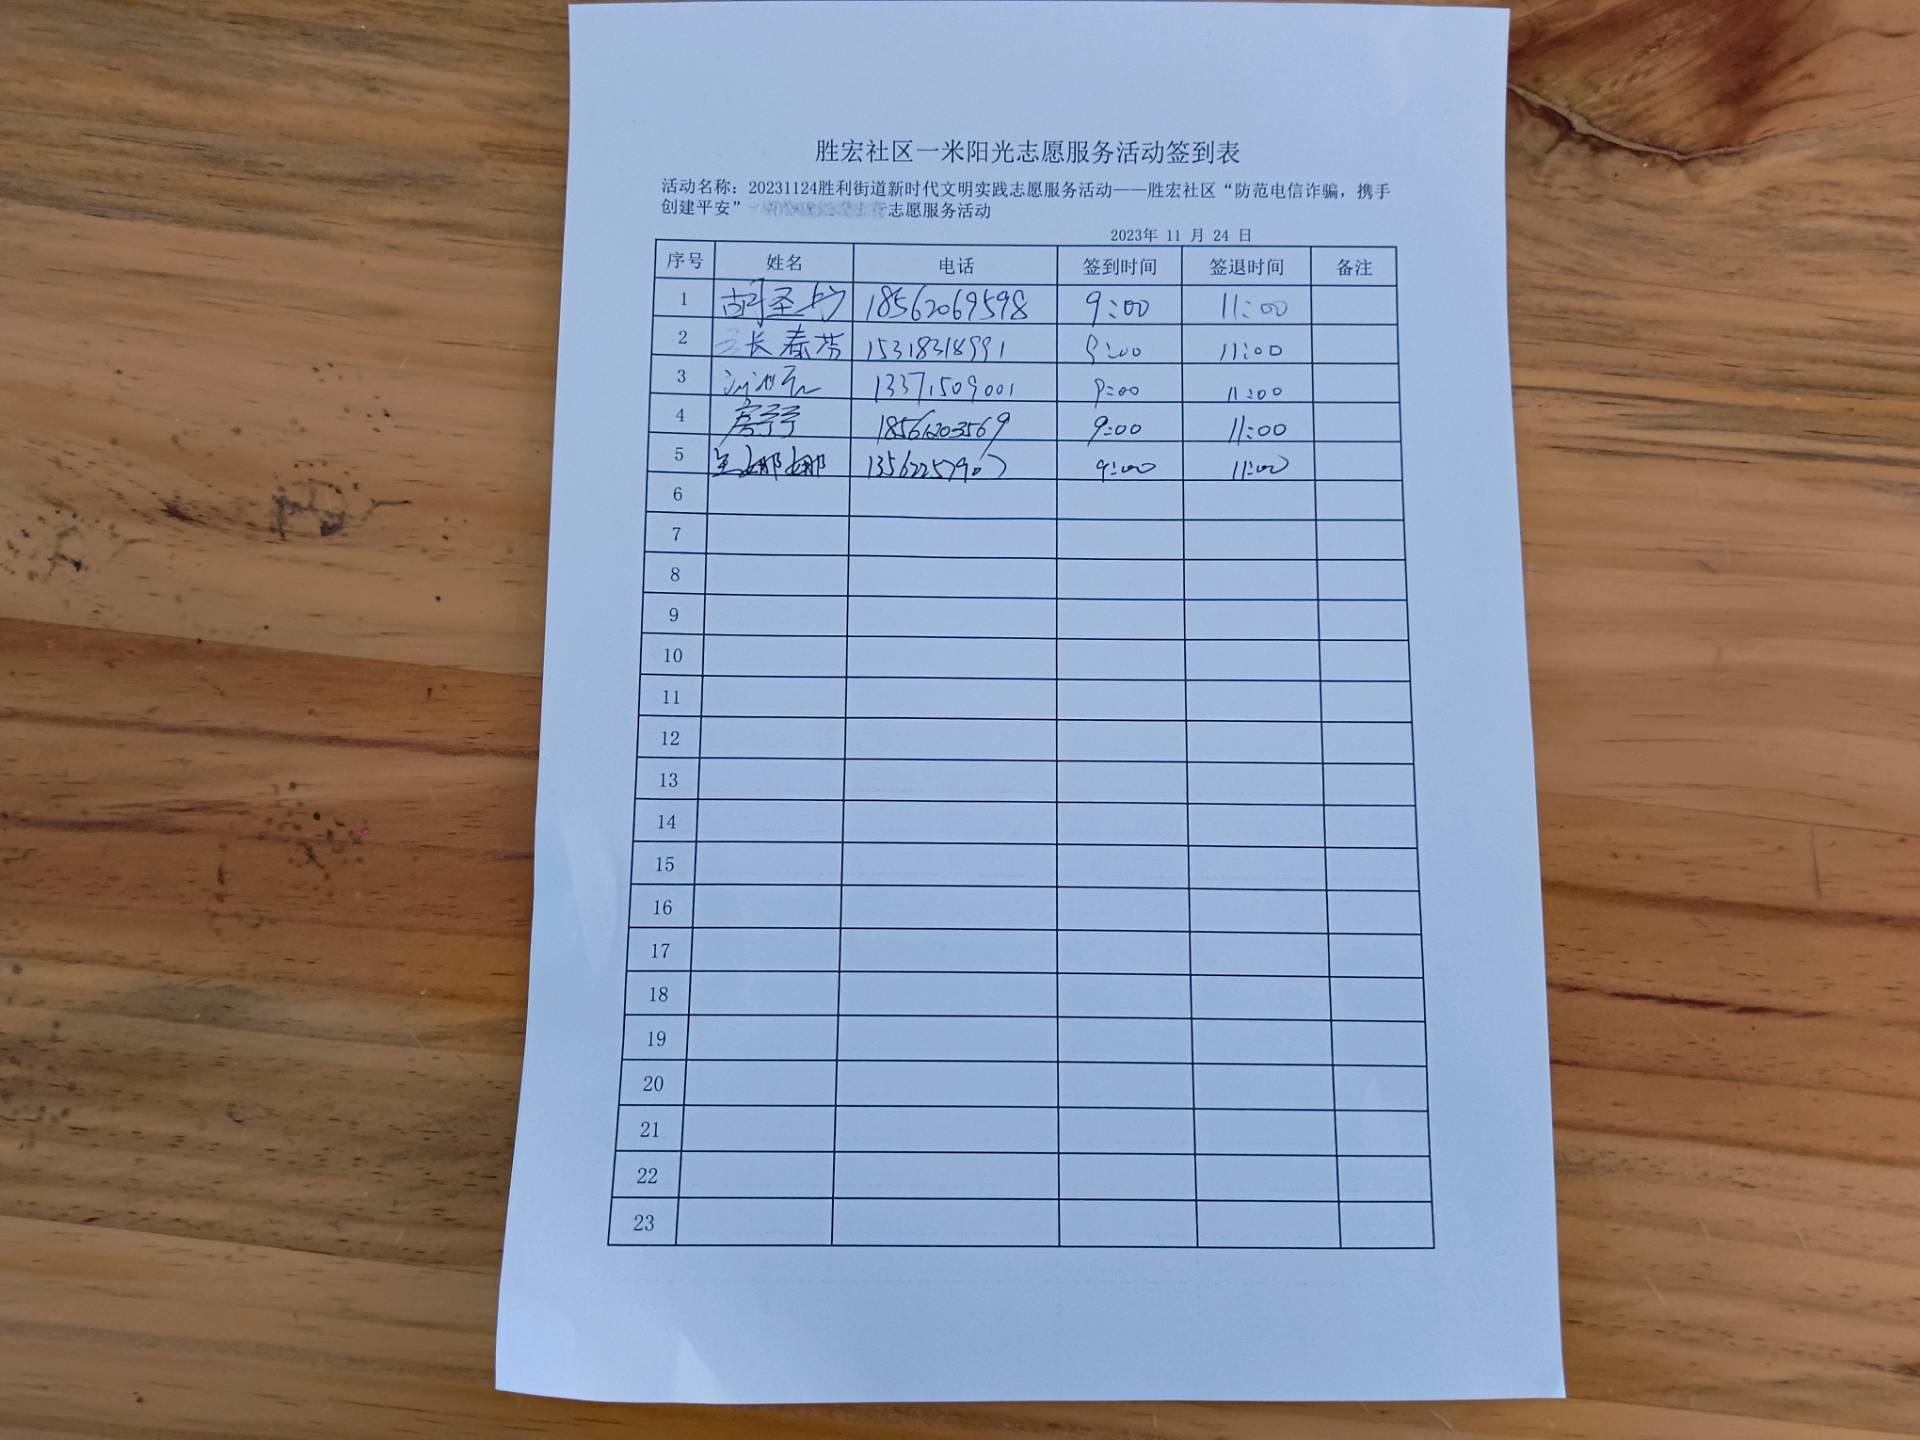 胜宏社区一米阳光志愿服务活动签到表
活动名称：20231124胜利街道新时代文明实践志愿服务活动——胜宏社区“防范电信诈骗，携手
创建平安” 志愿服务活动
2023年 11 月 24 日
序号 姓名 电话 签到时间 签退时间 备注
1 胡圣 18562069598 9:00 11:00
2 张春芳 15318318991 9:00 11:00
3 13371509001 9:00 11:00
4 房宁宁 18561203569 9:00 11:00
5 娜娜 13562257907 9:00 11:00
6
7
8
9
10
11
12
13
14
15
16
17
18
19
20
21
22
23